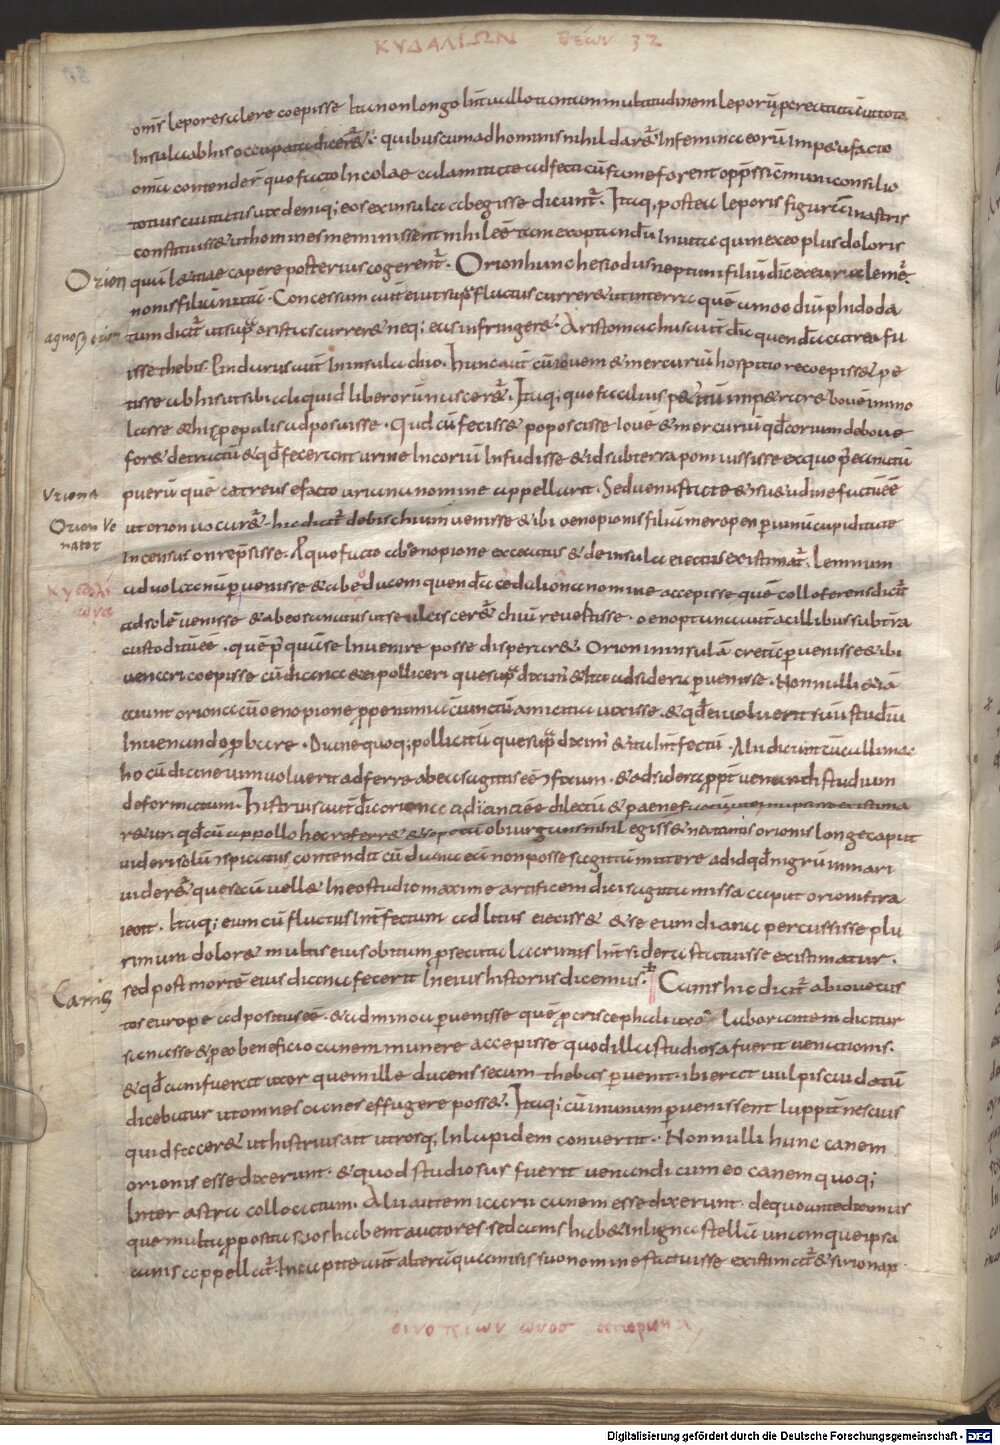 ΚΥΔΑΛΙΩΝ 32
omīs lepores alere coepisse Itaque non longo Intervallo tantam multitudinem leporū
Insula ab his occupata diceretur quibus cum ad hominis nihil daretur In semina eorū impetu facto
omnia quo facto Incolae calamitate adfecti cū fame forent communi consilio
totius civitatis vix deniq; eos ex insula abegisse dicuntur. Itaq; postea leporis figuram in astris
constituisse ut homines meminissent nihil eē tam exoptandū In vita quin ex eo plus doloris
quā laetitiae capere posterius cogerentr. Orion hunc hesiodus neptuni filiū dicit ex euryale
Orion
nonis filia natū. Concessum aut ei ut supra fluctus curreret ut in terra quē amodū iphido da
tum dicitr ut supra aristas curreret neq; eas infringeret. Aristomachus aut dīc quendā catrea fu
isse thebis. Pindarus aut In insula chio. hunc aut cū iovem et mercuriū hospitio recoepisset pe
tisse ab his ut sibi aliquid liberorū nasceretr. Itaq; quo facilius petitū impetraret bovem immo
lasse et his pro epulis adposuisse. Quod cū fecisset poposcisse iovē et mercuriū qđ coriū de bove
foret detractū et qđ fecerant urine In coriū Infudisse et id sub terra poni iussisse ex quo postea natū
Vriona
puerū quē catreus e facto uriona nomine appellarit. Sed venustate et suetudine factū eē
Orion Venator
ut orion vocaretr. hic dicitr de bis chium venisse et ibi oenopionis filiā meropen per vinū cupiditate
Incensus onrepsisse. A quo facto ab oenopione excaecatus et de insula eiectus existimatr. lemnum
ad volcanū pervenisse et ab eo ducem quendā cedaliona nomine accepisse quē collo ferens dicitr
ad solē venisse et ab eo sanatus ut se ulcisceretr chiū revertisse. oenopiona aut a civibus sub terra
custoditū eē. quē postquā se Invenire posse disperaret Orion in insulā cretā pervenisse et ibi
venari coepisse cū diana et ei polliceri que supra diximus et ita ad sidera pervenisse. Nonnulli etiā
aiunt oriona cū oenopione prope nimia coniunctū amicitia vixisse. et qđ ei voluerit suū studiū
In venando probare. Diane quoq; pollicitū que supra diximus et ita Interfectū. Alii dicunt cū callimac
ho cū diane vim voluerit adferre ab ea sagittis eē confixum. et ad sidera propter venandi studium
deformatum. histrius aut dīc oriona a diana eē dilectū et paene factū ut ei nupsisse existima
retur. qđ cū appollo hec referret et sepe eā obiurgans nihil egisset natantis orionis longe caput
videri solū conspicatus contendit cū diana eā non posse sagittā mittere ad id qđ nigrū in mari
videretr que se cū vellet In eo studio maxime artificem dici sagitta missa caput orionis tra
iecit. Itaq; eum cū fluctus Interfectum ad litus eiecisset et se eum diana percussisse plu
rimum doloret multis eius obitum prosecuta lacrimis Inter sidera statuisse existimatur.
sed post mortē eius diana fecerit In eius historiis dicemus. Canis hic dicitr ab iove cus
Canis
tos europe adpositus eē. et ad minoa pervenisse quē procris cephali uxor laborantem dicitur
sanasse et pro eo beneficio canem munere accepisse quod illa studiosa fuerit venationis.
et qđ cani fuerat uxor quem ille ducens secum thebas pervenit. ibi erat vulpis cui datū
dicebatur ut omnes canes effugere posset. Itaq; cū in unum pervenissent Iuppiter nescius
quid faceret ut histrius ait utrosq; In lapidem convertit. Nonnulli hunc canem
orionis esse dixerunt. et quod studiosus fuerit venandi cum eo canem quoq;
Inter astra collocatum. Alii autem icari canem esse dixerunt. de quo ante diximus
que multa proposita suos habent auctores. sed canis habet in lingua stellā unam que ipsa
canis appellatr. In capite aut alterā quam isis suo nomine statuisse existimatr et sirion ap
Digitalisierung gefördert durch die Deutsche Forschungsgemeinschaft - DFG